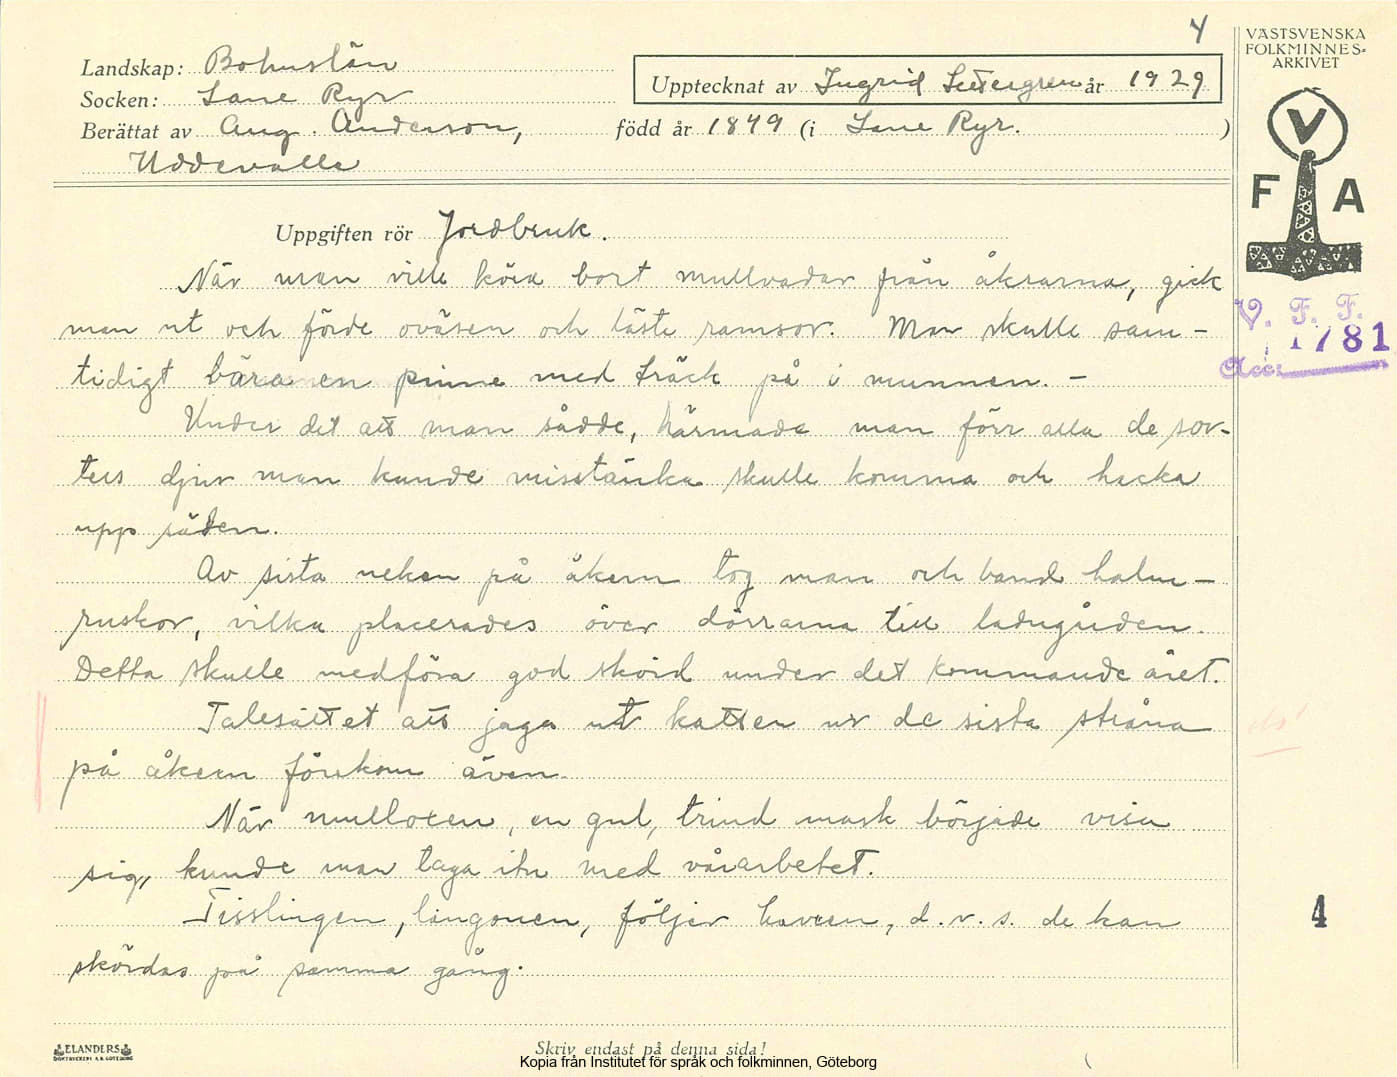 4
VÄSTSVENSKA
FOLKMINNES-
ARKIVET
Landskap: Bohuslän
Upptecknat av Ingrid år 1929
Socken: Lane Ryr
Berättat av Aug. Anderson, född år 1849 (i Lane Ryr. )
Uddevalla
V
F A
Uppgiften rör Jordbruk.
När man ville köra bort mullvadar från åkrarna, gick
man ut och förde oväsen och läste ramsor. Man skulle sam-
tidigt bära en pinne med träck på i munnen. -
Under det att man sådde, härmade man förr alla de sor-
ters djur man kunde misstänka skulle komma och hacka
upp säden.
Av sista neken på åkern tog man och band halm-
ruskor, vilka placerades över dörrarna till ladugården.
Detta skulle medföra god skörd under det kommande året.
Talesättet att jaga ut katten ur de sista stråna
på åkern förekom även.
När mulloxen, en gul, trind mask började visa
sig, kunde man taga itu med vårarbetet.
Tisslingen, lingonen, följer havren, d.v.s. de kan
skördas på samma gång.
V. F. F.
1781
Acc:
4
ELANDERS
BOKTRYCKERI A.B. GÖTEBORG
Skriv endast på denna sida!
Kopia från Institutet för språk och folkminnen, Göteborg